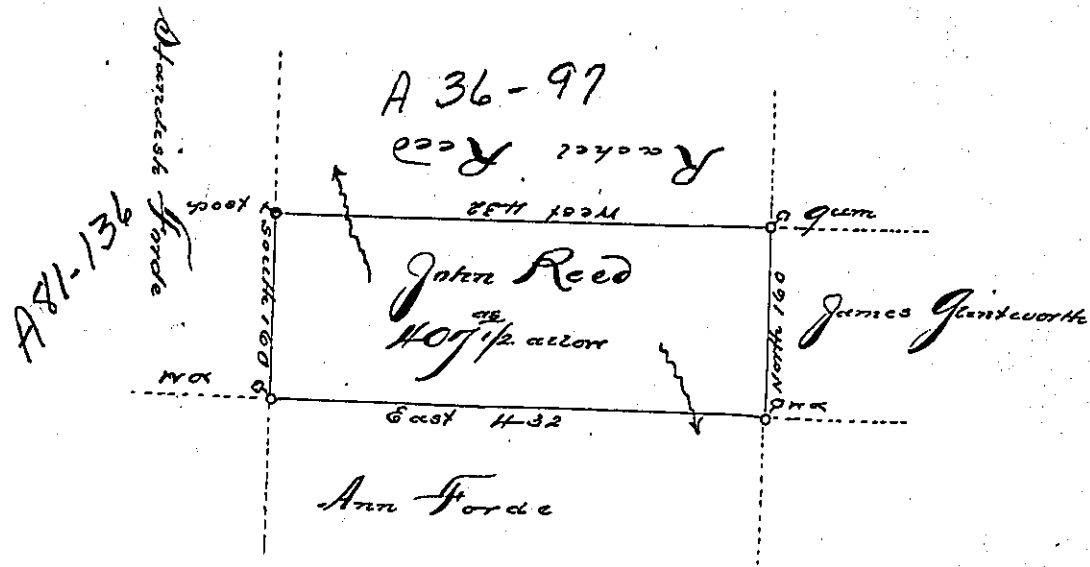 A 36-97
Rachel Reed
Standish Forde
A81-136
post
West 432
gum
South 160
John Reed
407 1/2 ac allow
North 160
James Glentworth
East 432
Ann Forde